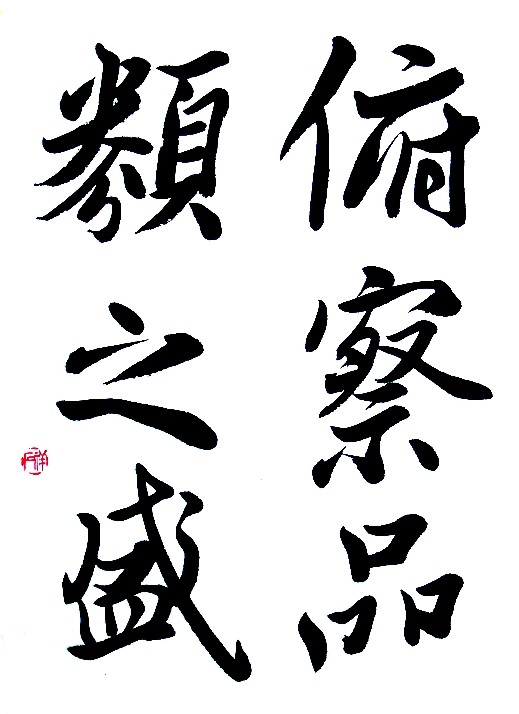 俯察品
類之盛